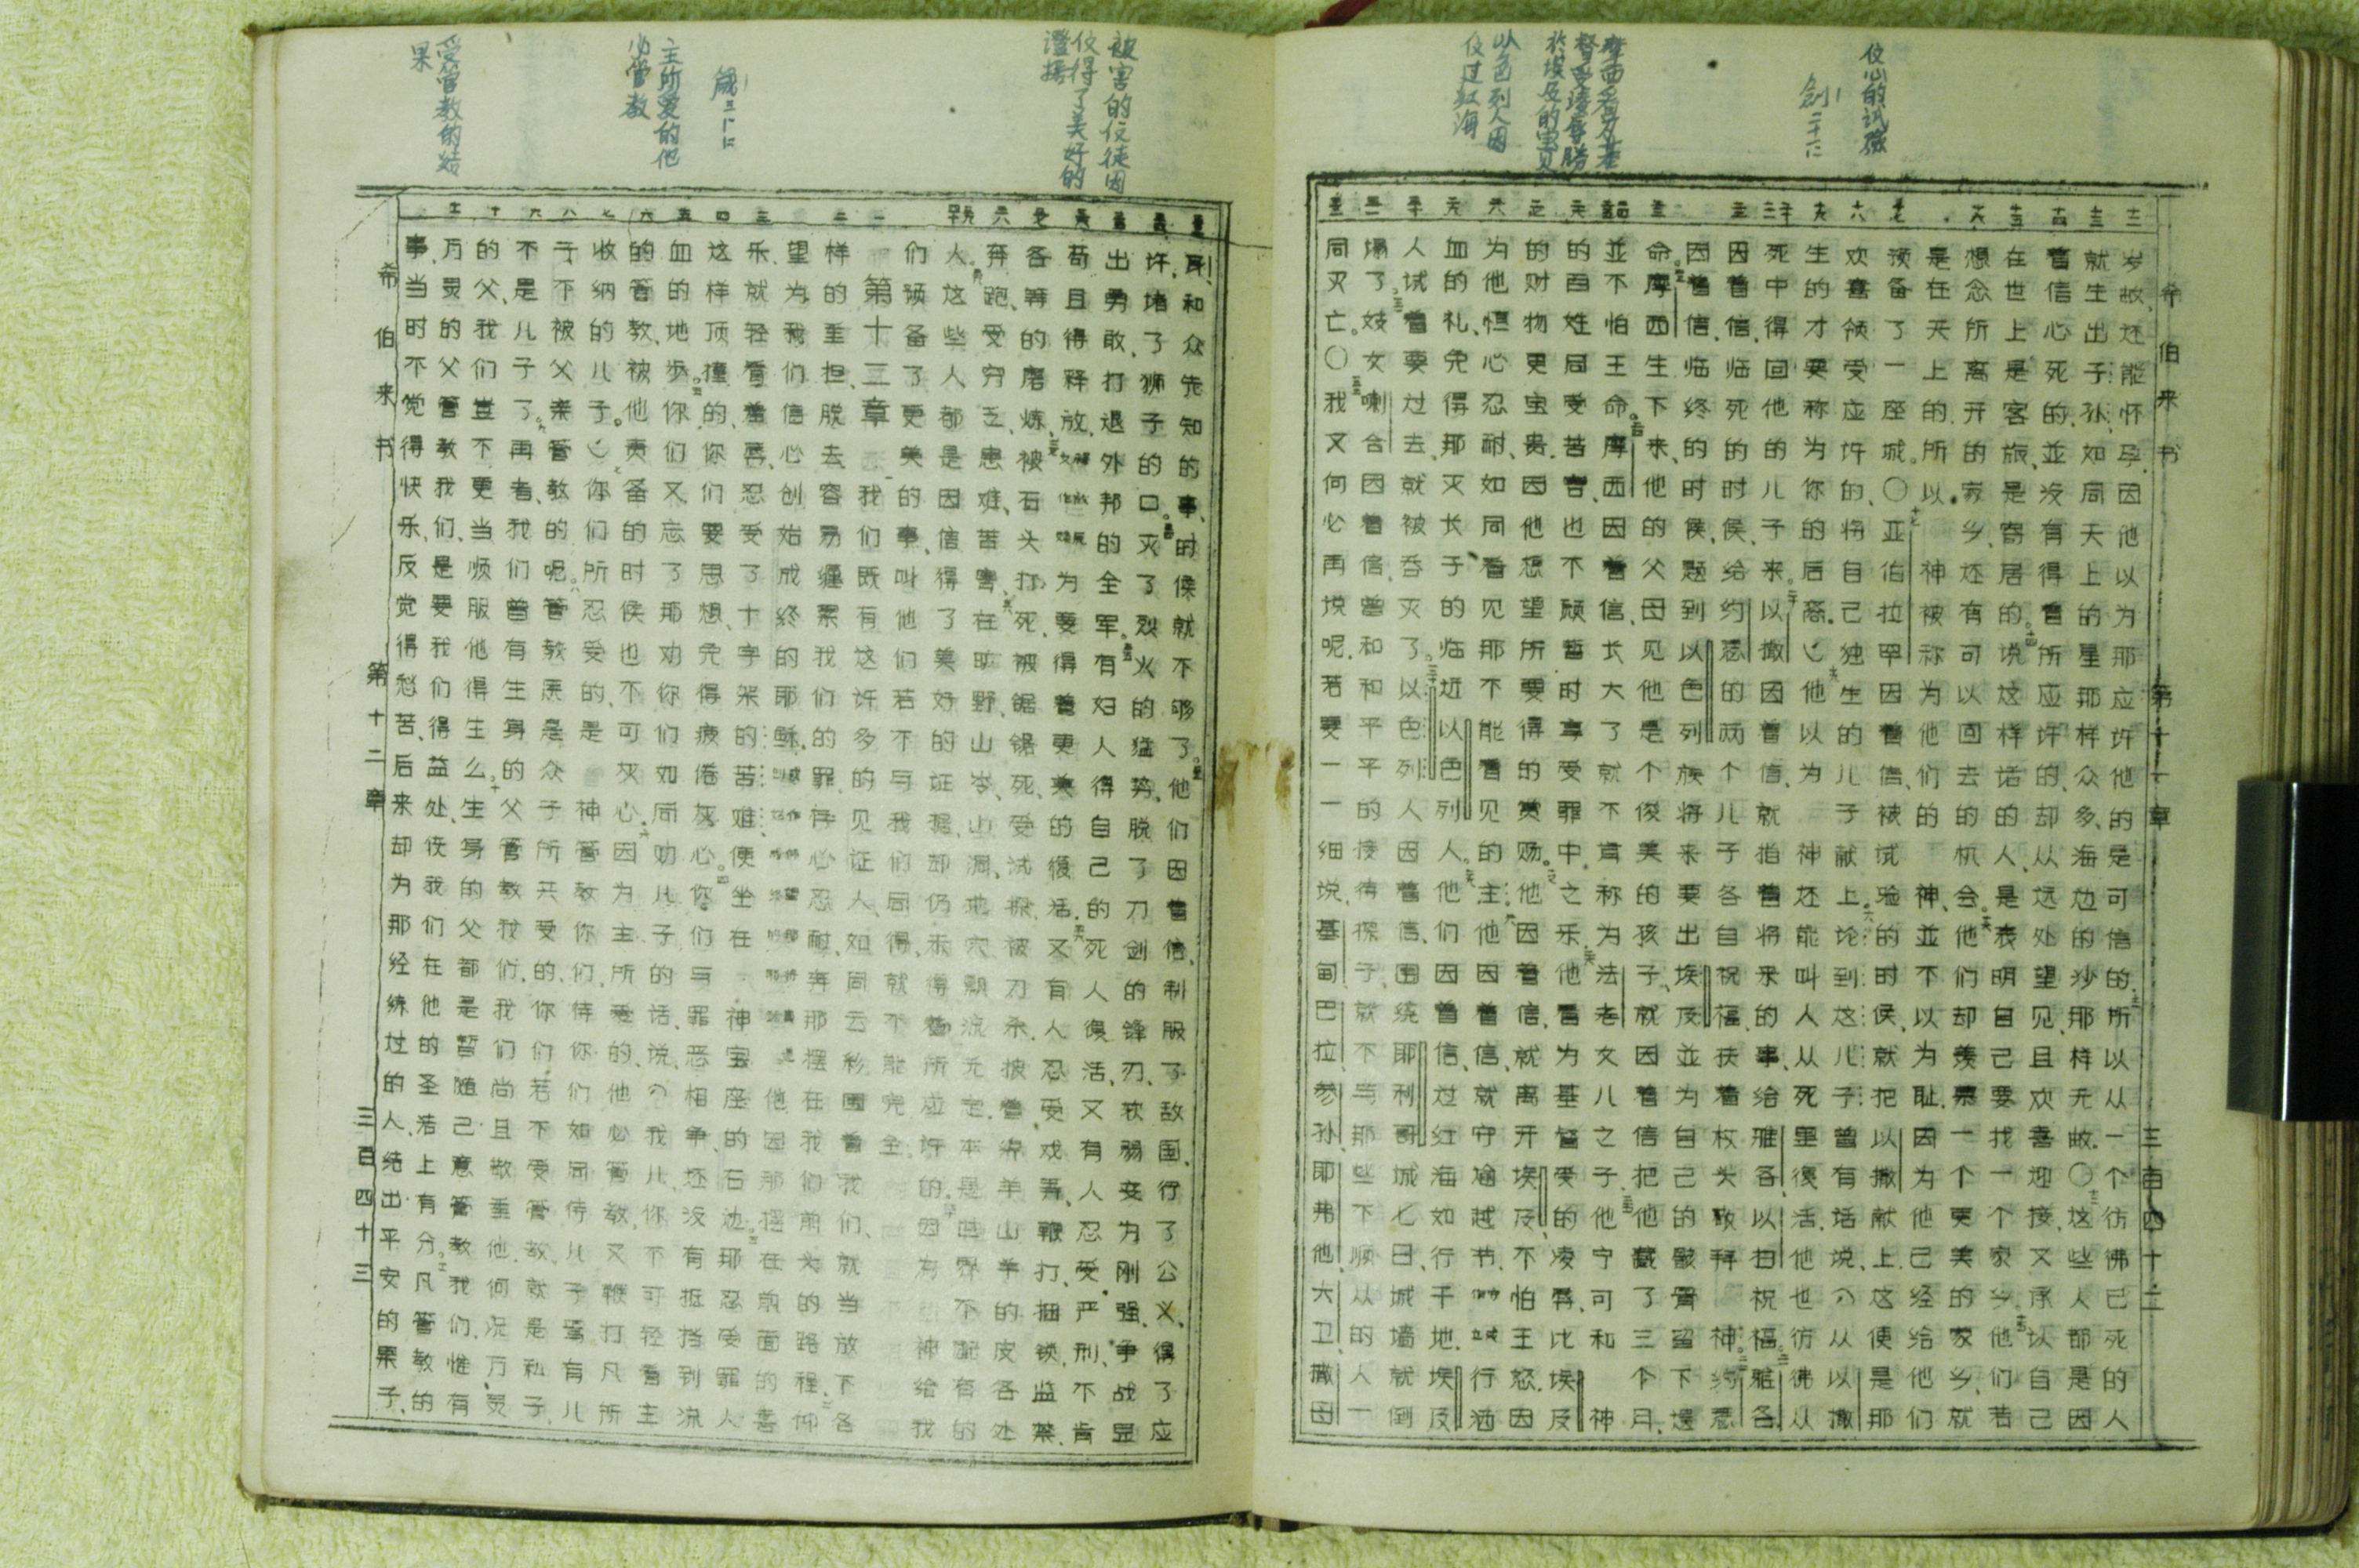 信心的试验
创二十二
摩西看为基
督受凌辱勝
於埃及的宝贝
以色列人因
信过红海
希伯来书 第十一章 三百四十二
岁故、还能怀孕.因他以为那应许他的是可信的.所以从一个彷佛已死的人
就生出子孙、如同天上的星那样众多、海边的沙那样无故.〇这些人都是因
着信心死的、並没有得着所应许的、却从远处望见、且欢喜迎接、又承认自己
在世上是客旅、是寄居的.说这样话的人、是表明自己要找一个家乡.他们若
想念所离开的家乡、还有可以回去的机会.他们却羡慕一个更美的家乡、就
是在天上的.所以 神被称为他们的 神、並不以为耻.因为他已经给他们
预备了一座城.〇亚伯拉罕因着信、被试验的时侯、就把以撒献上.这便是那
欢喜领受应许的、将自己独生的儿子献上.论到这儿子曾有话说、从以撒
生的才要称为你的后裔.他以为 神还能叫人从死里復活.他也彷佛从
死中得回他的儿子来.以撒因着信、就指着将来的事、给雅各以扫祝福.雅各
因着信、临死的时侯、给约瑟的两个儿子各自祝福、扶着杖头敬拜 神.约瑟
因着信、临终的时侯、题到以色列族将来要出埃及、並为自己的骸骨留下遗
命.摩西生下来、他的父母见他是个俊美的孩子、就因着信把他藏了三个月、
並不怕王命.摩西因着信、长大了就不肯称为法老女儿之子.他宁可和 神
的百姓同受苦害、也不愿暂时享受罪中之乐.他看为基督受的凌辱、比埃及
的财物更宝贵.因他想望所要得的赏赐.他因着信、就离开埃及、不怕王怒.因
为他恒心忍耐、如同看见那不能看见的主.他因着信、就守逾越节、行洒
血的礼、免得那灭长子的临近以色列人.他们因着信、过红海如行干地.埃及
人试着要过去、就被吞灭了.以色列人因着信、围绕耶利哥城七日、城墙就倒
塌了.妓女喇合因着信、曾和和平平的接待探子、就不与那些不顺从的人一
同灭亡.〇我又何必再说呢.若要一一细说、基甸、巴拉、参孙、耶弗他、大卫、撒母
被害的信徒因
信得了美好的
證据
箴三11 12
主所爱的他
必管教
受管教的结
果
耳、和众先知的事、时侯就不够了.他们因着信、制服了敌国、行了公义、得了应
许、堵了狮子的口.灭了烈火的猛势、脱了刀剑的锋刃、软弱变为刚强、争战显
出勇敢、打退外邦的全军.有妇人得自己的死人復活、又有人忍受严刑、不肯
苟且得释放、为要得着更美的復活.又有人忍受戏弄、鞭打、捆锁、监禁、
各等的磨炼、被石头打死、被锯锯死、受试探、被刀杀.披着绵羊山羊的皮各处
奔跑、受穷乏、患难、苦害、在旷野、山岺、山洞、地穴、飘流无定.本是世界不配有的
人.这些人都是因信得了美好的证据、却仍未得着所应许的.因为 神给我
们预备了更美的事、叫他们若不与我们同得、就不能完全.
第十三章
我们既有这许多的见证人、如同云彩围着我们、就当放下各
样的重担、脱去容易缠累我们的罪、存心忍耐、奔那摆在我们前头的路程.仰
望为我们信心创始成终的耶稣.
他因那摆在前面的喜
乐、就轻看羞辱、忍受了十字架的苦难、便坐在 神宝座的右边.那忍受罪人
这样顶撞的、你们要思想、免得疲倦灰心.你们与罪恶相争、还没有抵挡到流
血的地步.你们又忘了那劝你们如同劝儿子的话、说、我儿、你不可轻看主
的管教、被他责备的时侯也不可灰心.因为主所爱的、他必管教、又鞭打凡所
收纳的儿子.你们所忍受的、是 神管教你们、待你们如同待儿子.焉有儿
子不被父亲管教的呢.管教原是众子所共受的、你们若不受管教、就是私子、
不是儿子了.再者、我们曾有生身的父管教我们、我们尚且敬重他、何况万灵
的父、我们岂不更当顺服他得生么.生身的父都是暂随己意管教我们、惟有
万灵的父管教我们、是要我们得益处、使我们在他的圣洁上有分.凡管教的
事、当时不觉得快乐、反觉得愁苦、后来却为那经练过的人、结出平安的果子.
希伯来书 第十二章 三百四十三